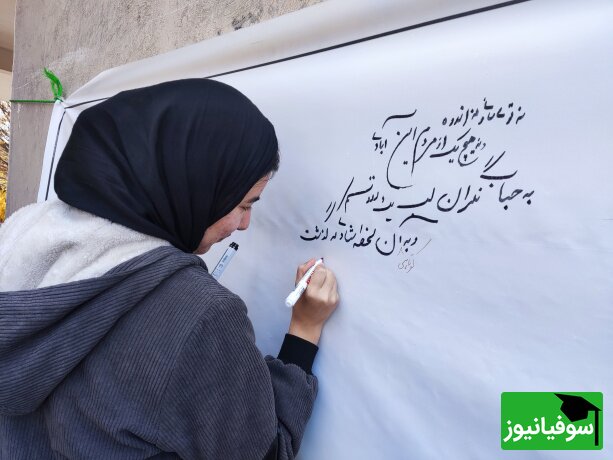 نه تو می مانی نه اندوه
و نه هیچ یک از مردم این آبادی
به حباب نگران لب یک رود قسم
و به آن لحظه شادی که گذشت
کوتاهی
سوفیانیوز